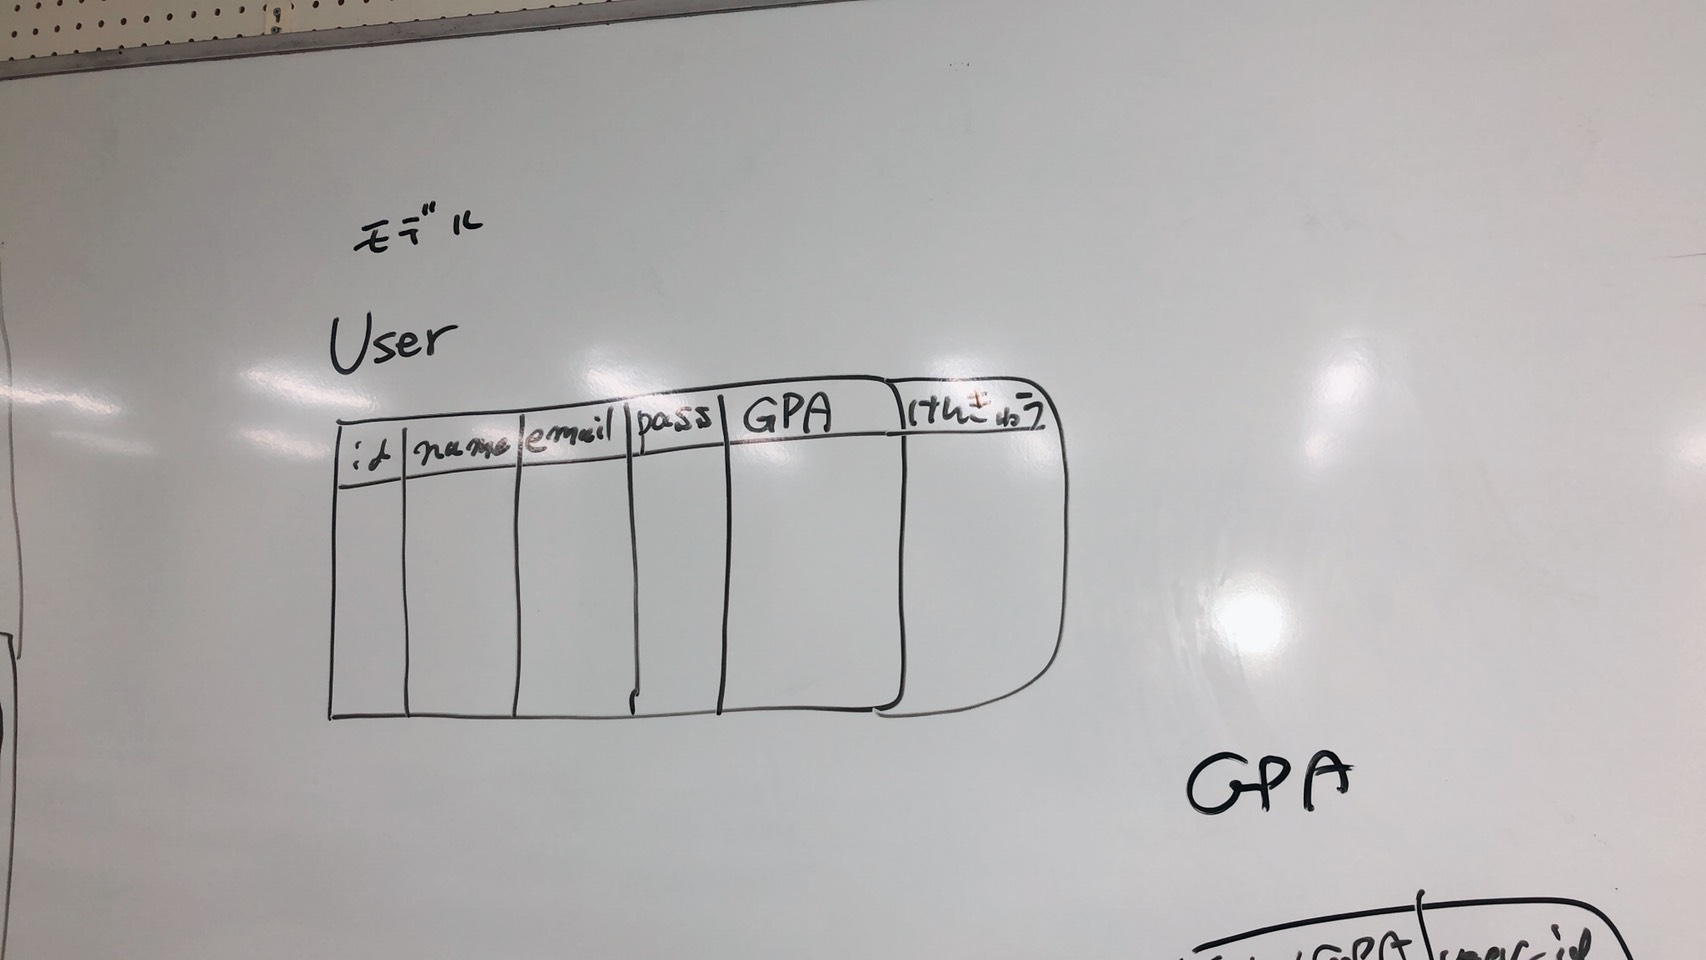 モデル
User
id name email pass GPA
GPA
GPA user-id